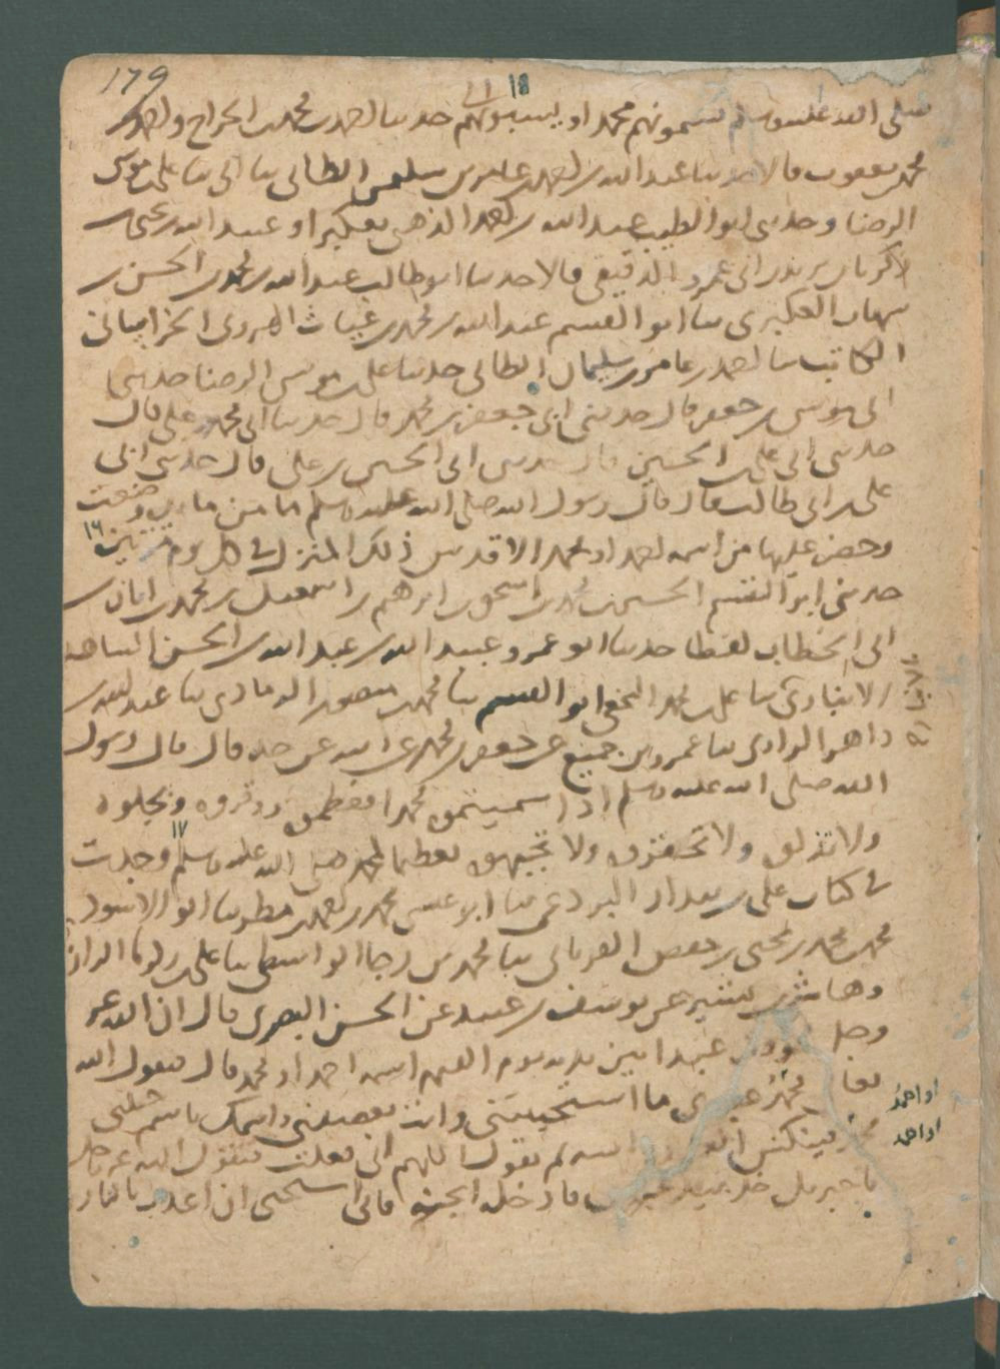 179
صلى الله عليه وسلم تسمونهم محمدا و يسبونهم حدثنا احمد بن محمد بن الجراح واحمد بن
محمد بن يعقوب قالا حدثنا عبد الله بن احمد بن عامر بن سليمن الطائي نا ابي نا علي بن موسى
الرضا وحدثني ابو الطيب عبد الله بن احمد الذهبي بعكبرا وعبيد الله بن يحيى بن
زكريا بن يزيد ابي عمرو الدقيقي قالا حدثنا ابو طالب عبد الله بن محمد بن الحسن بن
شهاب العكبري نا ابو القسم عبد الله بن محمد بن غياث الهروي الخراساني
الكاتب نا احمد بن عامر بن سليمان الطائي حدثنا علي بن موسى الرضا حدثني
ابي موسى بن جعفر قال حدثني ابي جعفر بن محمد قال حدثنا ابي محمد بن علي قال
حدثني ابي علي بن الحسين قال حدثني ابي الحسين بن علي قال حدثني ابي
علي بن ابي طالب قال قال رسول الله صلى الله عليه وسلم ما من مايدة وضعت
وحضر عليها من اسمه احمد او محمد الا قدس ذلك المنزل في كل يوم مرتين ١٦
حدثني ابو القسم الحسين بن محمد بن اسحق بن ابرهيم بن اسمعيل بن محمد بن ابان بن
ابي الخطاب لفظا حدثنا ابو عمرو عبيد الله بن عبد الله بن الحسن
الانباري نا علي بن محمد النخعي ابو القسم نا محمد بن منصور الرمادي نا عبد الله بن
داهر الرازي نا عمرو بن جميع عن جعفر بن محمد عن ابيه عن جده قال قال رسول
الله صلى الله عليه وسلم اذا سميتموه محمدا فعظموه ووقروه وبجلوه
ولا تذلوه ولا تحقروه ولا تجبهوه تعظيما لمحمد صلى الله عليه وسلم ١٧ وجدت
في كتاب علي بن بندار البردعي نا ابو عيسى محمد بن احمد بن مطر نا ابو الاسود
محمد بن محمد بن يحيى بن حفص نا محمد بن رجا الواسطي نا علي بن
وهاشم بن بشير عن يوسف بن عبيد عن الحسن البصري قال ان الله عز
وجل عبدا بين يديه يوم القيمة اسمه احمد او محمد قال فيقول الله
عبدي ما استحييتني وانت تعصيني واسمك باسم حبيبي
او احمد
محمد فينكس العبد راسه ثم يقول اللهم اني فعلت فيقول الله عز وجل
او احمد
يا جبريل خذ بيد عبدي فادخله الجنة فاني استحيي ان اعذب بالنار